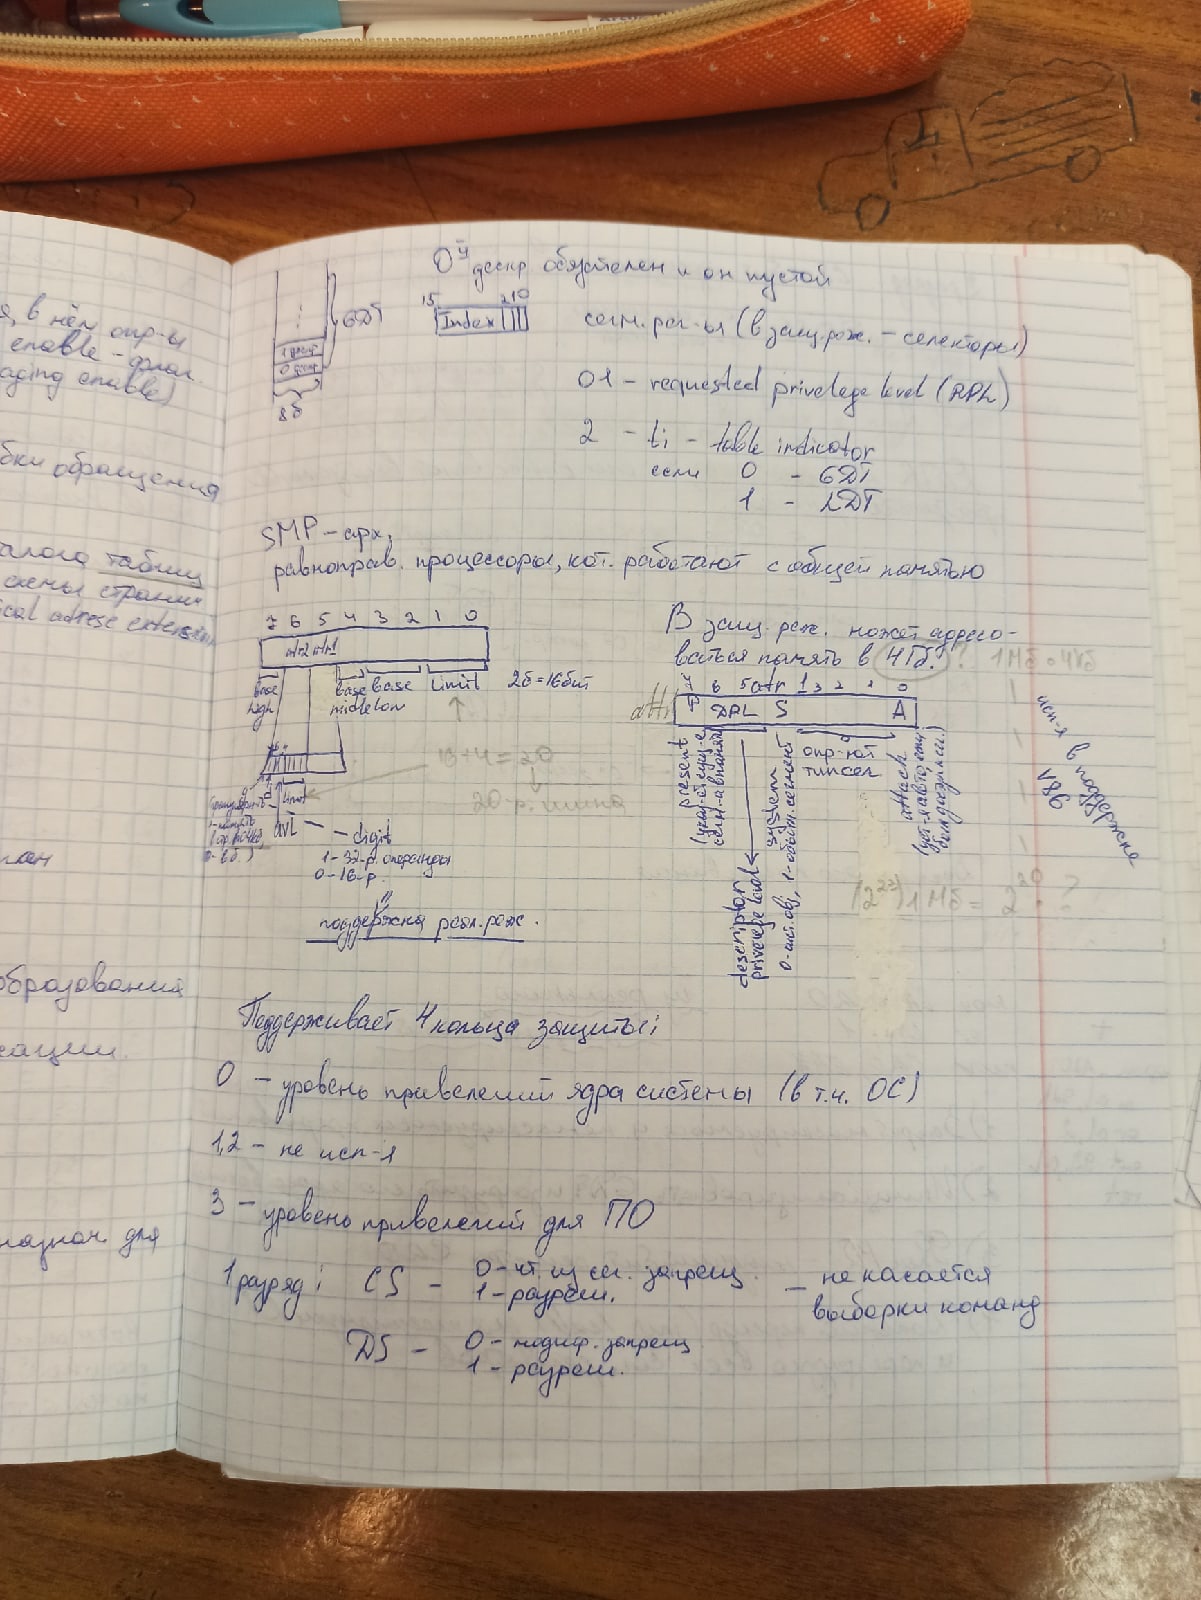 я, в нём опр-ы
enable - флаг.
aging enable)
бки обращения
таблиц
схемы страниц
ical adrese extension
образований
назнач. для
0ой дескр обязателен и он пустой
GDT
1 дескр
0 дескр
8б
15 2 1 0
Index
сегм. рег-ы (в защ. реж. - селекторы)
01 - requested privelege level (RPL)
2 - ti - table indicator
если 0 - GDT
1 - LDT
SMP - арх.
равноправ. процессоры, кот. работают с общей памятью
7 6 5 4 3 2 1 0
atr2 atr1
base high
base middle
base low
Limit
2б = 16бит
16+4=20
20-р. шина
Limit
avL
- digit
1 - 32-р. операнды
0 - 16-р.
поддержка реал. реж.
В защ. реж. может адресо-
ваться память в 4Гб.
? 1Мб * 4Кб
atr 1
6 5 3 2 0
DPL S A
present
опр-ют
тип сег.
system
0 - сист. obj, 1 - обыч. сегмент
descriptor
privelege level
исп-я в поддержке
1Мб = 2^20 ?
Поддерживает 4 кольца защиты:
0 - уровень привелегий ядра системы (в т.ч. ОС)
1,2 - не исп-я
3 - уровень привелегий для ПО
1 разряд: CS - 0 - чт. из сег. запрещ.
1 - разреш.
- не касается
выборки команд
DS - 0 - модиф. запрещ
1 - разреш.